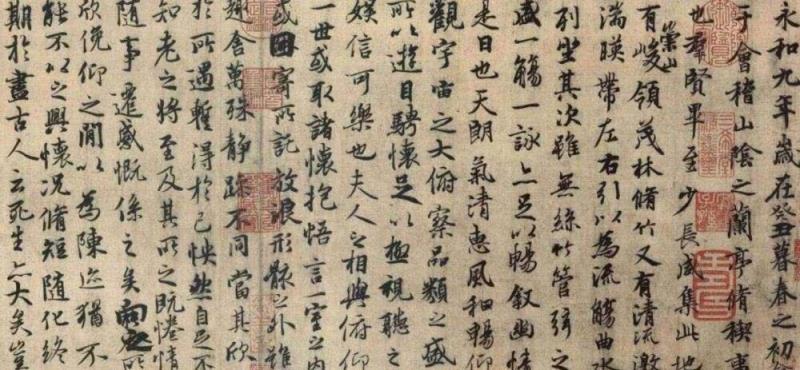 永和九年歲在癸丑暮春之初
于會稽山陰之蘭亭脩稧事
也羣賢畢至少長咸集此地
有崇山峻領茂林脩竹又有清流激
湍暎帶左右引以為流觴曲水
列坐其次雖無絲竹管弦之
盛一觴一詠亦足以暢敘幽情
是日也天朗氣清惠風和暢仰
觀宇宙之大俯察品類之盛
所以遊目騁懷足以極視聽之
娛信可樂也夫人之相與俯仰
一世或取諸懷抱悟言一室之內
或因寄所託放浪形骸之外雖
趣舍萬殊靜躁不同當其欣
於所遇暫得於己怏然自足不
知老之將至及其所之既惓情
隨事遷感慨係之矣向之所
欣俛仰之閒以為陳迹猶不
能不以之興懷況脩短隨化終
期於盡古人云死生亦大矣豈